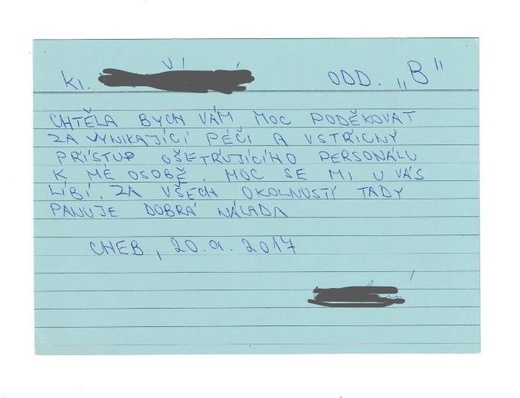 K1. ODD. „B"
CHTĚLA BYCH VÁM MOC PODĚKOVAT
ZA VYNIKAJÍCÍ PÉČI A VSTŘÍCNÝ
PŘÍSTUP OŠETŘUJÍCÍHO PERSONÁLU
K MÉ OSOBĚ. MOC SE MI U VÁS
LÍBÍ. ZA VŠECH OKOLNOSTÍ TADY
PANUJE DOBRÁ NÁLADA
CHEB, 20.9.2017